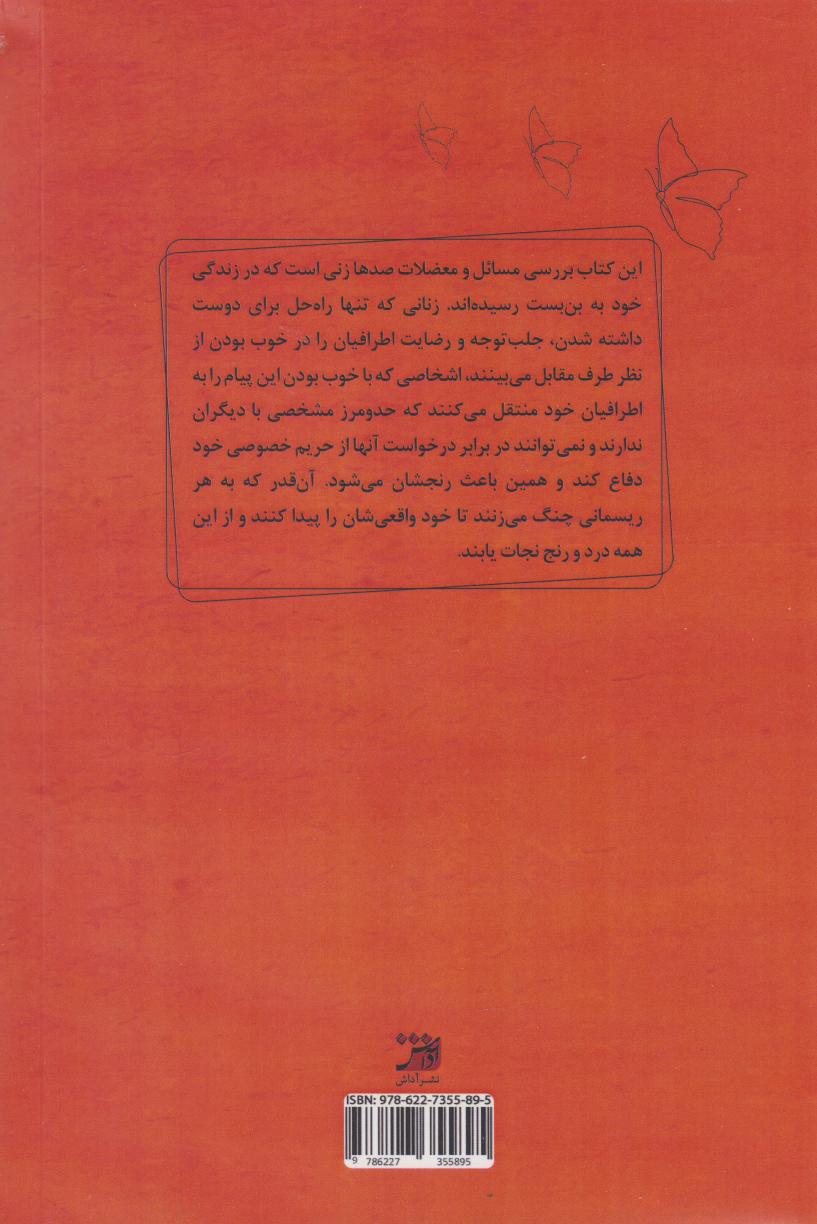 این کتاب بررسی مسائل و معضلات صدها زنی است که در زندگی
خود به بن‌بست رسیده‌اند. زنانی که تنها راه‌حل برای دوست
داشته شدن، جلب‌توجه و رضایت اطرافیان را در خوب بودن از
نظر طرف مقابل می‌بینند، اشخاصی که با خوب بودن این پیام را به
اطرافیان خود منتقل می‌کنند که حدومرز مشخصی با دیگران
ندارند و نمی‌توانند در برابر درخواست آنها از حریم خصوصی خود
دفاع کند و همین باعث رنجشان می‌شود. آن‌قدر که به هر
ریسمانی چنگ می‌زنند تا خود واقعی‌شان را پیدا کنند و از این
همه درد و رنج نجات یابند.
آداش
نشر آداش
ISBN: 978-622-7355-89-5
9 786227 355895